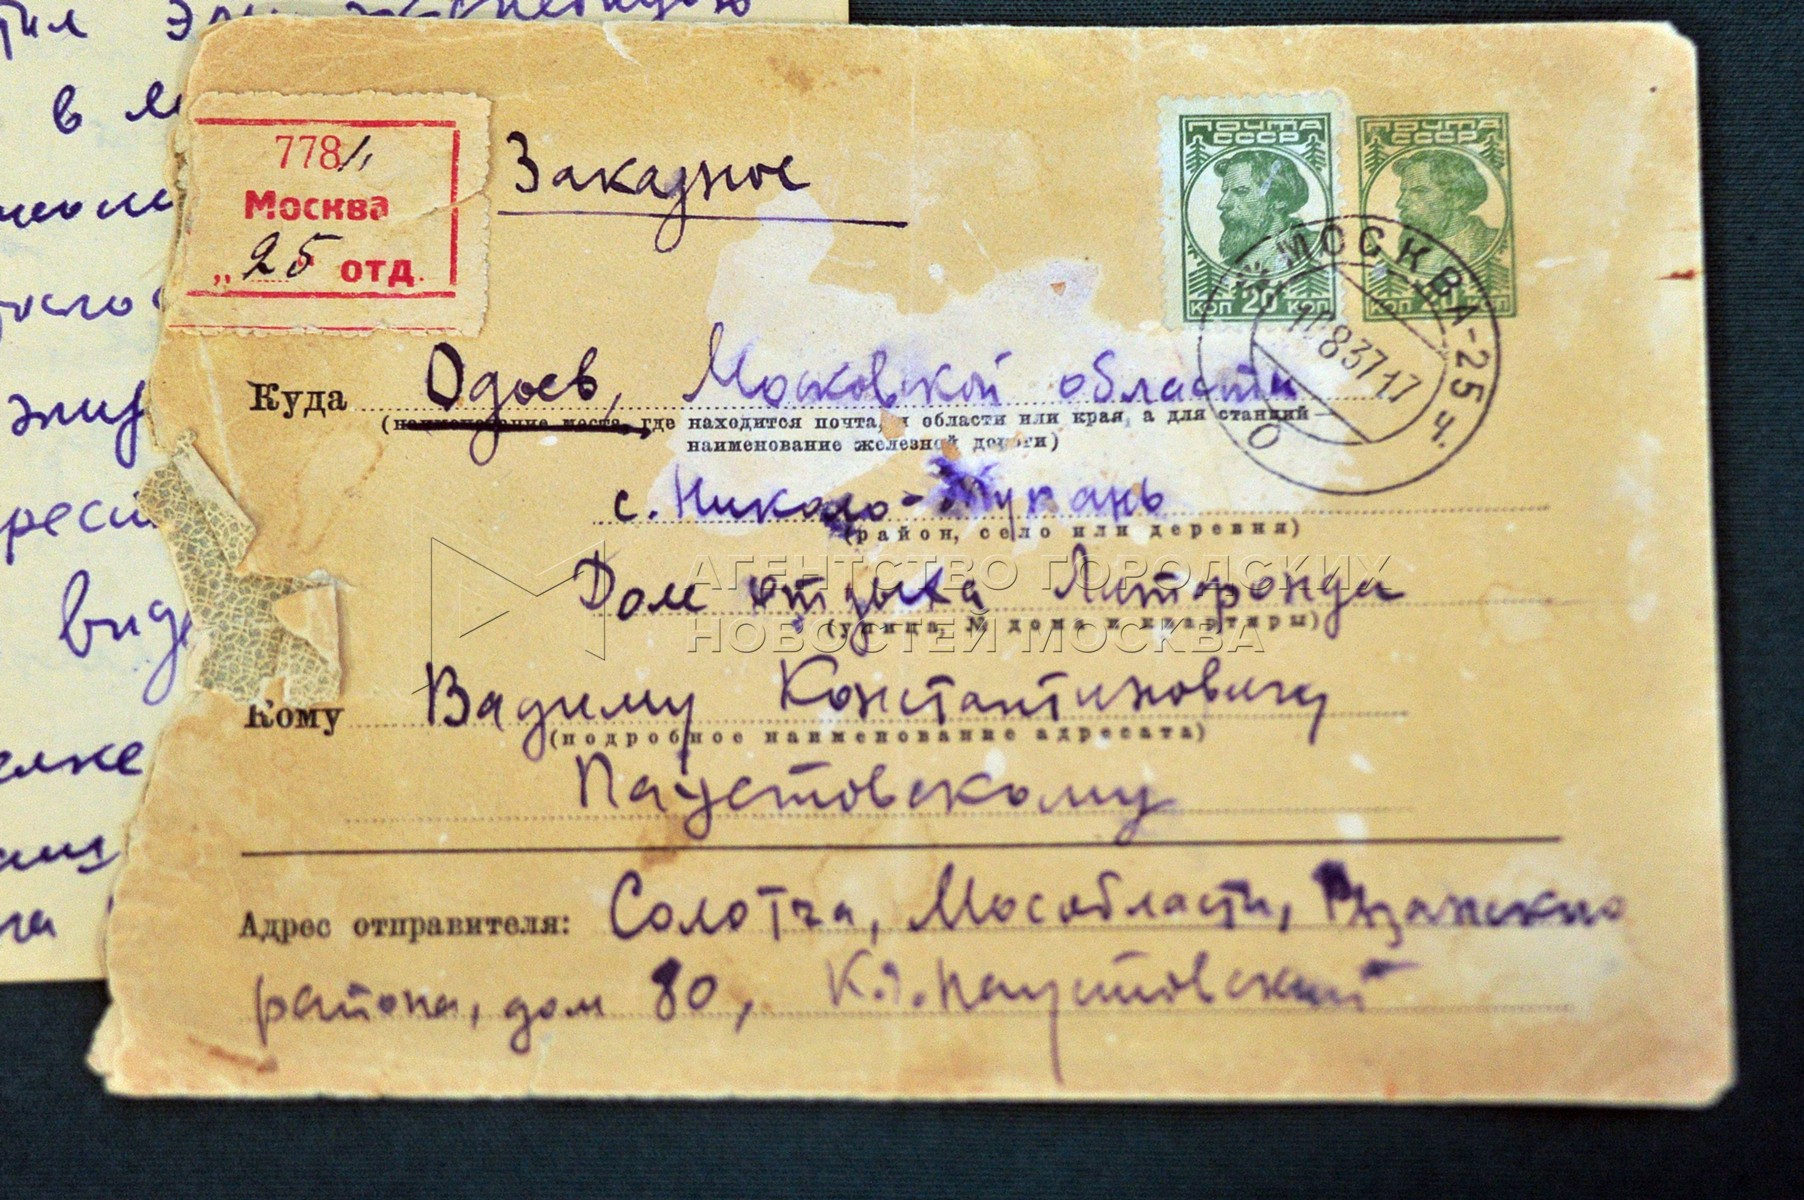 778/1,
Москва
„25" отд.
Заказное
ПОЧТА
СССР
КОП 20 КОП
ПОЧТА
СССР
КОП 20 КОП
МОСКВА-25 Ч.
8 37 17
Куда Одоев, Московской области
(наименование места, где находится почта, и области или края, а для станций —
наименование железной дороги)
с. Николо-Жупань
(район, село или деревня)
Дом отдыха Литфонда
(улица, № дома и квартиры)
АГЕНТСТВО ГОРОДСКИХ
НОВОСТЕЙ МОСКВА
Кому Вадиму Константиновичу
(подробное наименование адресата)
Паустовскому
Адрес отправителя: Солотча, Мособласти, Рязанского
района, дом 80, К.Г. Паустовский
в